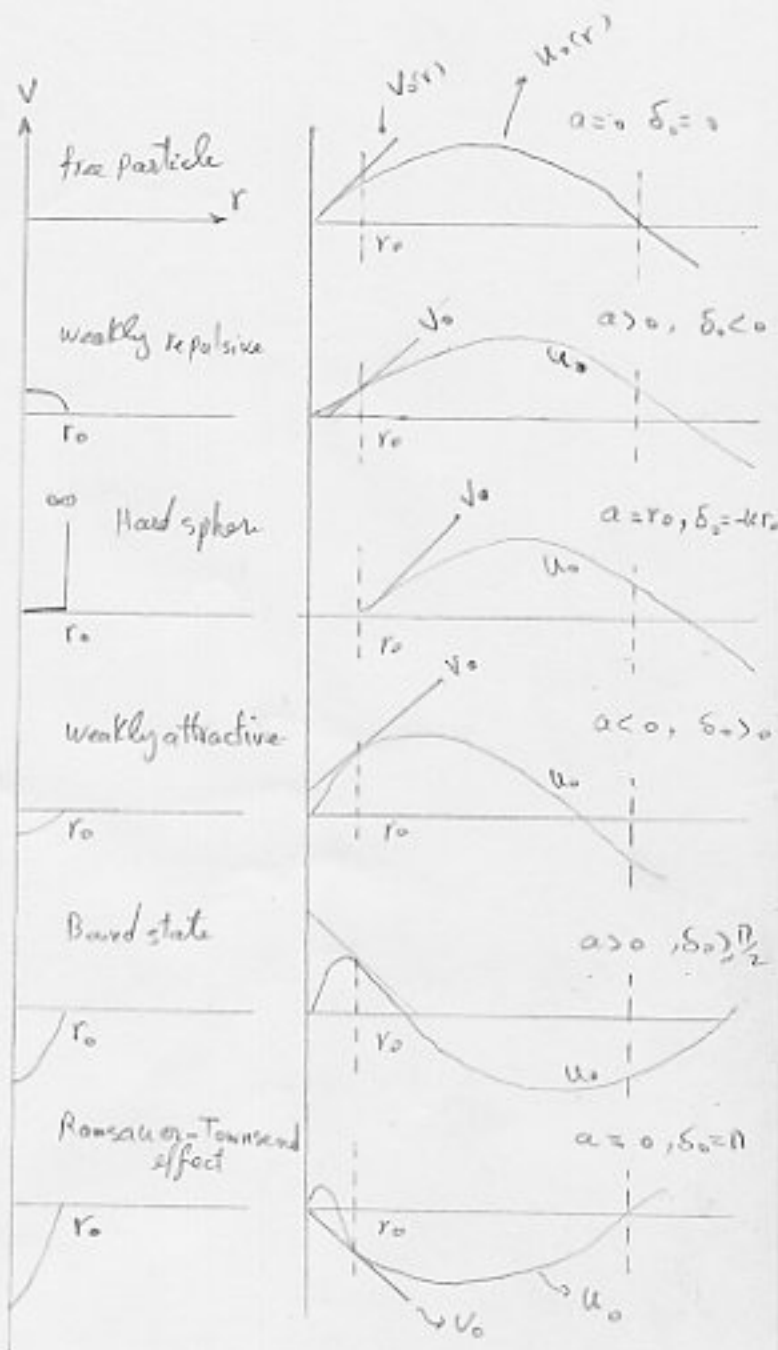 V
free particle
r
v₀(r)
u₀(r)
a=0 δ₀=0
r₀
weakly repulsive
r₀
v₀
u₀
a>0, δ₀<0
r₀
∞
Hard sphere
r₀
v₀
u₀
a=r₀, δ₀=-kr₀
r₀
weakly attractive
r₀
v₀
u₀
a<0, δ₀>0
r₀
Bound state
r₀
u₀
a>0, δ₀≥π/2
r₀
Ramsauer-Townsend
effect
r₀
a=0, δ₀=π
r₀
v₀
u₀